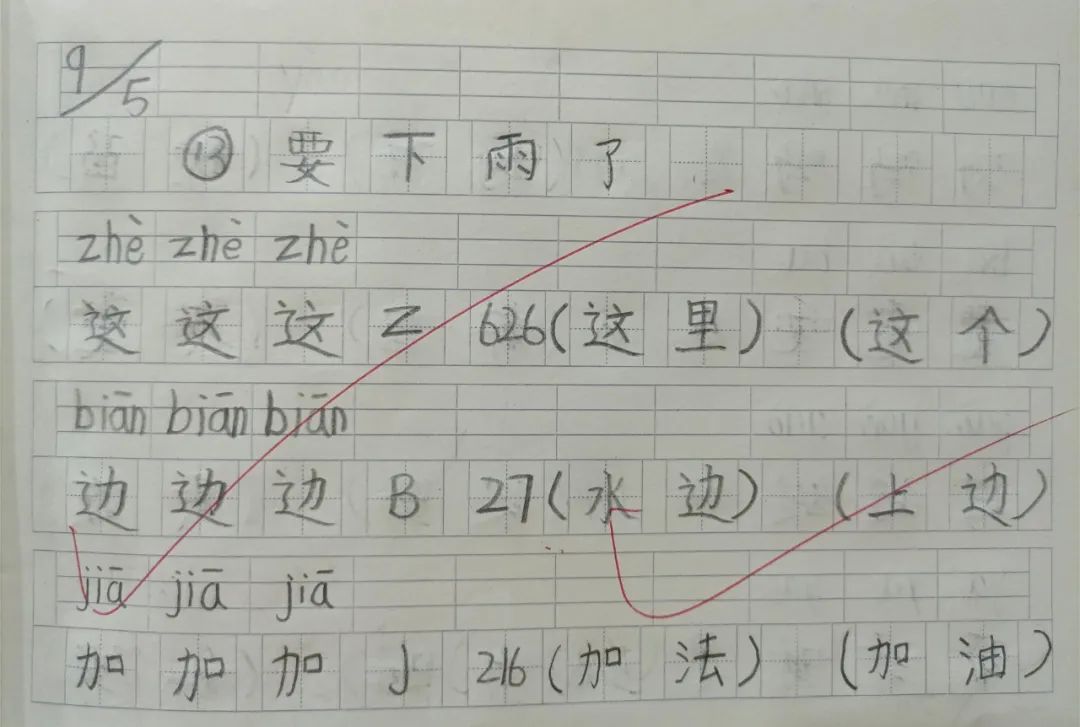 9/5
⑬ 要下雨了
zhè zhè zhè
这 这 这 Z 626(这里) (这个)
biān biān biān
边 边 边 B 27(水边) (上边)
jiā jiā jiā
加 加 加 J 216(加法) (加油)